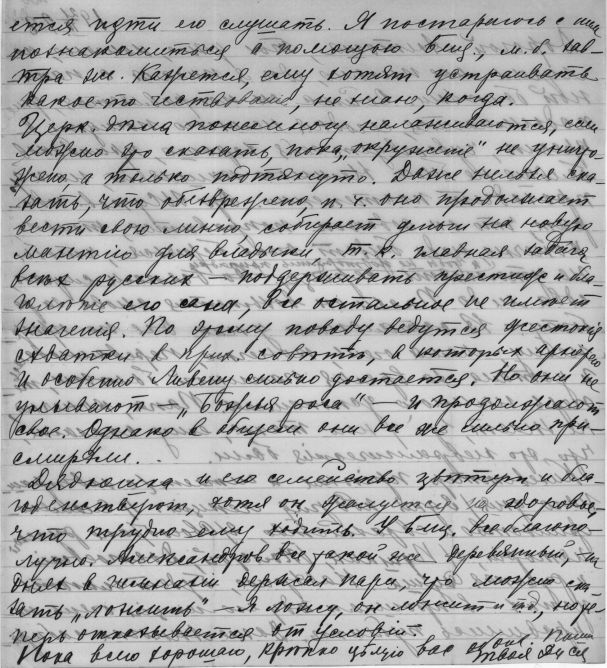 ется идти его слушать. Я постараюсь с ним
познакомиться с помощью Биц., м. б. зав-
тра же. Кажется, ему хотят устраивать
какое то чествование, не знаю, когда.
Церк. дѣла понемногу налаживаются, если
можно это сказать, пока „окружение" не унич-
тожено, а только подтянуто. Даже нельзя ска-
зать, что обезврежено, п. ч. оно продолжает
вести свою линию, собирает деньги на новую
мантию для владыки, т. к. главная задача
всех русских — поддерживать престиж и бла-
голепие его сана, все остальное не имеет
значения. По этому поводу ведутся жестокия
схватки в прих. совѣтѣ, в которых архиерею
и особенно Ливену сильно достается. Но они не
унывают — „Божья роса" — и продолжают
свое. Однако в общем они все же сильно при-
смирели...
Дядюшка и его семейство цвѣтут и бла-
годенствуют, хотя он жалуется на здоровье,
что трудно ему ходить. У виц. все благопо-
лучно. Александров все такой же деревянный, на
днях в гимназии держал пари, что можно ска-
зать „ложить" — я ложу, он ложит и т.д., но те-
перь отказывается от условий.
Пока всего хорошаго, крепко целую вас
твоя